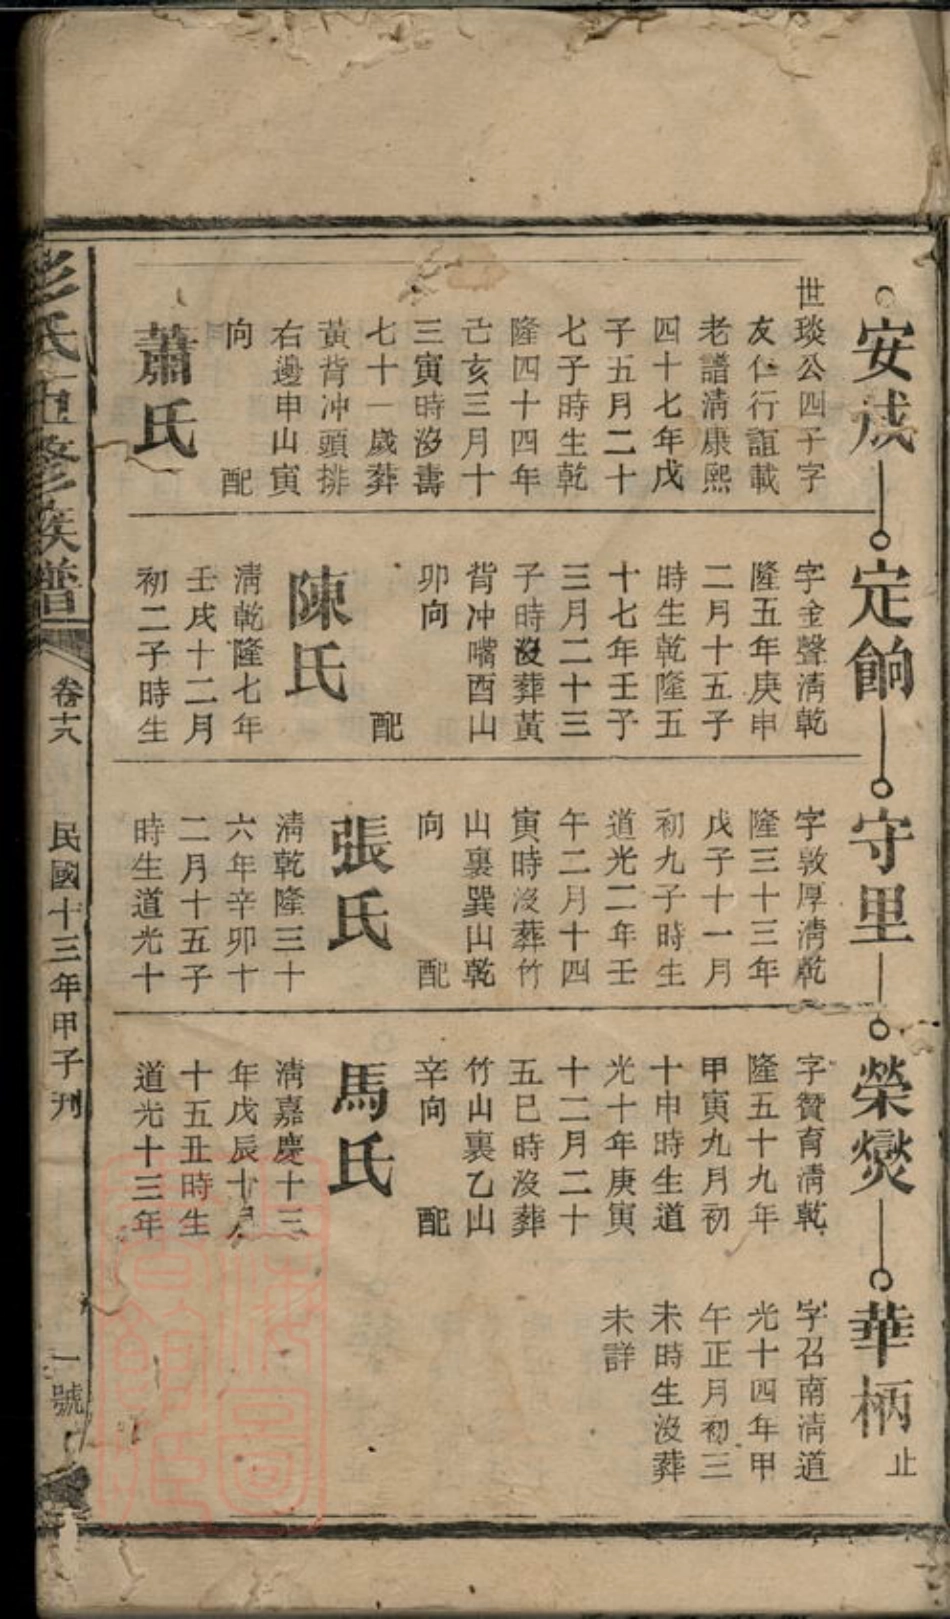 安成
世琰公四子字
友仁行誼載
老譜淸康熙
四十七年戊
子五月二十
七子時生乾
隆四十四年
己亥三月十
三寅時沒壽
七十一歲葬
黃背冲頭排
右邊申山寅
向 配
蕭氏
定餉
字金聲淸乾
隆五年庚申
二月十五子
時生乾隆五
十七年壬子
三月二十三
子時沒葬黃
背冲嘴酉山
卯向
配
陳氏
淸乾隆七年
壬戌十二月
初二子時生
守里
字敦厚淸乾
隆三十三年
戊子十一月
初九子時生
道光二年壬
午二月十四
寅時沒葬竹
山裏巽山乾
向 配
張氏
淸乾隆三十
六年辛卯十
二月十五子
時生道光十
榮爕
字贊育淸乾
隆五十九年
甲寅九月初
十申時生道
光十年庚寅
十二月二十
五巳時沒葬
竹山裏乙山
辛向 配
馬氏
淸嘉慶十三
年戊辰十月
十五丑時生
道光十三年
華柄 止
字召南淸道
光十四年甲
午正月初三
未時生沒葬
未詳
彭氏五修族譜 卷十六 民國十三年甲子刊 一號
上海圖書館藏